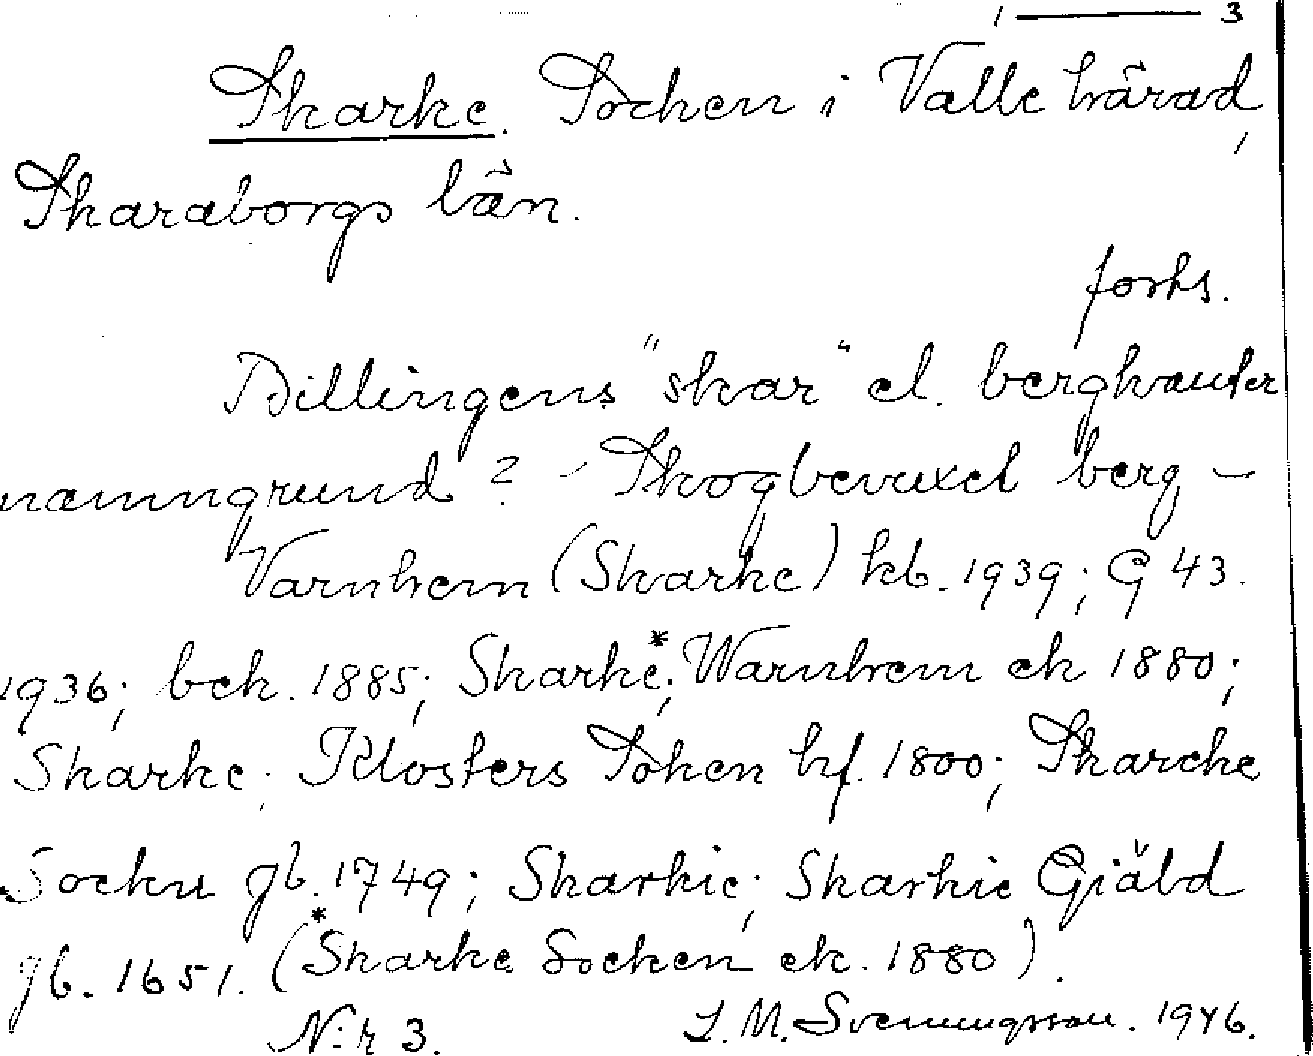 1 — 3
Skarke. Socken i Valle härad,
Skaraborgs län.
forts.
Billingens "skar" el. bergkanter
namngrund? - Skogbevuxet berg -
Varnhem (Skarke) kb. 1939; G 43.
1936; bek. 1885; Skarke*; Warnhem ek 1880;
Skarke; Klosters Soken hf. 1800; Skarcke
Sockn gb. 1749; Skarkie; Skarkie Giäld
gb. 1651. (*Skarke Socken ek. 1880).
N:r 3. S. M. Svenungsson. 1946.